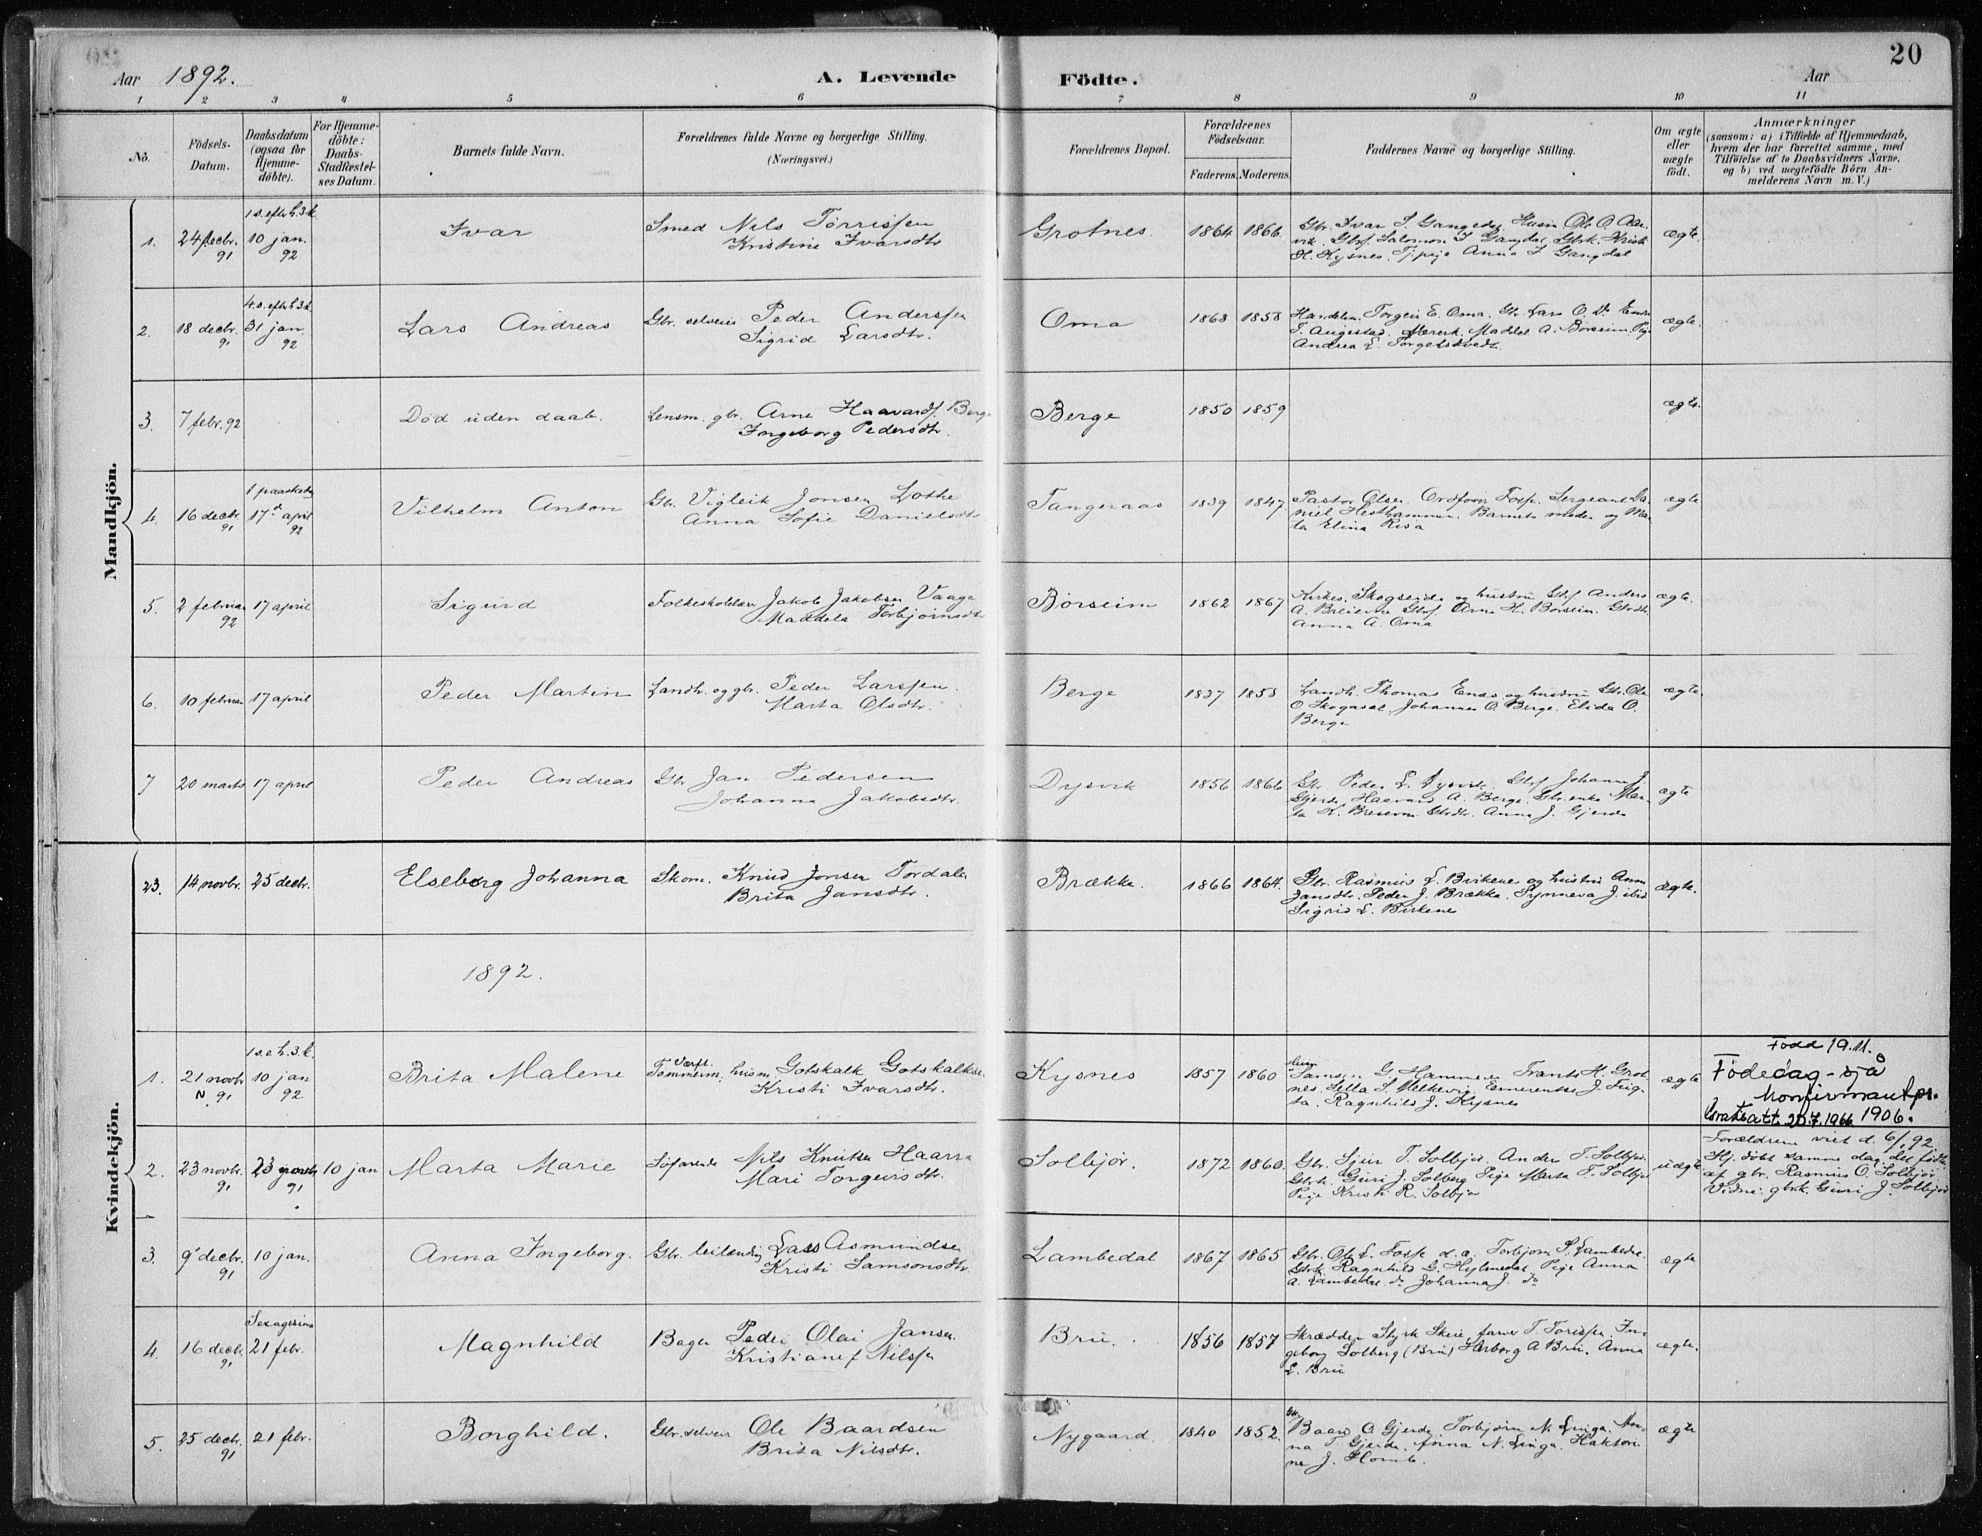 20
Aar 1892. A. Levende Födte. Aar
1 2 3 4 5 6 7 8 9 10 11
No. Födsels-Datum. Daabsdatum (ogsaa for Hjemme-döbte). For Hjemme-döbte: Daabs-Stadfæstel-ses Datum. Barnets fulde Navn. Forældrenes fulde Navne og borgerlige Stilling. (Næringsvei.) Forældrenes Bopæl. Forældrenes Födselsaar. Faderens. Moderens. Faddernes Navne og borgerlige Stilling. Om ægte eller uægte födt. Anmærkninger (saasom: a) i Tilfælde af Hjemmedaab, hvem der har forrettet samme, med Tilföielse af to Daabsvidners Navne, og b) ved uægtefödte Börn An-melderens Navn m. V.)
Mandkjön.
1 s. efter h. 3 k.
1. 24 decbr. 10 jan. Ivar Smed Nils Tørrissen Grotnes. 1864 1866. ægte.
91 92 Kristine Ivarsdtr
H. Kysnes. Pige Anna I Gangdal
4. s. efter h. 3 k.
2. 18 decbr. 31 jan. Lars Andreas Gbr. selveier Peder Anderssen Oma 1863 1858 Handelsm. Torgeir E. Oma. Gbr. Lars O. Do ægte.
91 92 Sigrid Larsdtr. T. Augestad. Maddel A. Børseim. Pige
Andrea L. Torgelstvedt.
3. 7 febr. 92 Død uden daab. Lensm. gbr. Arne Haavards. Berge Berge 1850 1859 ægte.
Ingeborg Pedersdtr.
1 paaskedag
4. 16 decbr. 17d april Vilhelm Anton Gbr. Vigleik Jonsen Lothe Tangeraas 1839 1847 Pastor Olsen Ordfører Fosse. Sergeant Da- ægte
91 92 Anna Sofie Danielsdtr niel Hesthammer. Barnets moder og Mar-
ta Elina Risa
5. 2 februar 17 april Sigurd Folkeskolelærer Jakob Jakobsen Vaage Børseim 1862 1867 Kirkes. Skogseide og hustru Gbsf. Anders ægte.
92 Maddela Torbjørnsdtr A. Breievne Gbsf. Arne H. Børseim. Gbrdtr.
Anna A. Oma
6. 10 februar 17 april Peder Martin Landh. og gbr. Peder Larssen. Berge 1837 1853 Landh. Thomas Enes og hustru Gbr. Ole ægte.
Marta Olsdtr. O Skogasel, Johannes O. Berge. Elida O.
Berge
7 20 marts 17 april Peder Andreas Gbr Jan Pedersen Dysvik 1856 1866 Gbr. Peder L. Dysvik. Gbsf. Johannes J. ægte
Johanna Jakobsdtr. Gjerde, Haavard A. Berge. Gbr.enke Mar-
ta K. Breievne Gbrdtr. Anna J. Gjerde
Kvindekjön.
23. 14 novbr. 25 decbr. Elseberg Johanna Skom. Knud Jonsen Tordalen Brække. 1866 1864. Gbr. Rasmus L. Birkene og hustru Anna ægte.
Brita Jansdtr. Jansdtr. Peder J. Brække. Synneva J. ibid
Sigrid L. Birkenes
1892.
1 s. e. h. 3. k. Født 19.11.
1. 21 novbr 10 jan Brita Malene Tømmerm. husm. Gotskalk Gotskalksen Kysnes 1857 1860 Samson G Hammer. Frants H. Grot- ægte Fødedag - sjå
N. 91 92 Kristi Ivarsdtr. nes ta. Ragnhild J. Kysnes Konfirmantpr.
1906.
2. 23 novbr. 23 novbr. 10 jan Marta Marie Søfarende Nils Knutsen Haarra Solbjør. 1872 1860. Gbr. Sjur T. Solbjør. Anders T. Solbjør. uægte Forældrene viet d. 6/1 92
91 91 Mari Torgeirsdtr. Gbrk. Guri J. Solberg Pige Marta T. Solbjør Hj. døbt samme dag det fødtes
Pige Kristi R. Solbjør af gbr. Rasmus O. Solbjør
Vidne: gbrk. Guri J. Solbjør
3 9 decbr. 10 jan. Anna Ingeborg. Gbr. leilending Lars Asmundsen Lambedal 1867 1865 Gbr. Ole L. Fosse d. æ. Torbjørn S. Lambedal. ægte
91 Kristi Samsonsdtr. Gbrk. Ragnhild G. Hylmedal Pige Anna
A. Lambedal do Johanna J. do
Sexagesima
4. 16 decbr. 21 febr. Magnhild Bager Peder Olai Jansen Bru. 1856 1857 Skrædder Styrk Skeie, farver T. Torissen. In- ægte.
91 Kristiane f Nilssen geborg Solberg (Bru) Herborg A Bru. Anna
L. Bru
5. 25 decbr. 21 febr. Borghild. Gbr. selveier Ole Baardsen Nygaard. 1840 1852. Gbr. Baard O Gjerde. Torbjørn N. Linga. An- ægte
91 Brita Nilsdtr. na T Gjerde. Anna N. Linga.
ne J. Flomb.